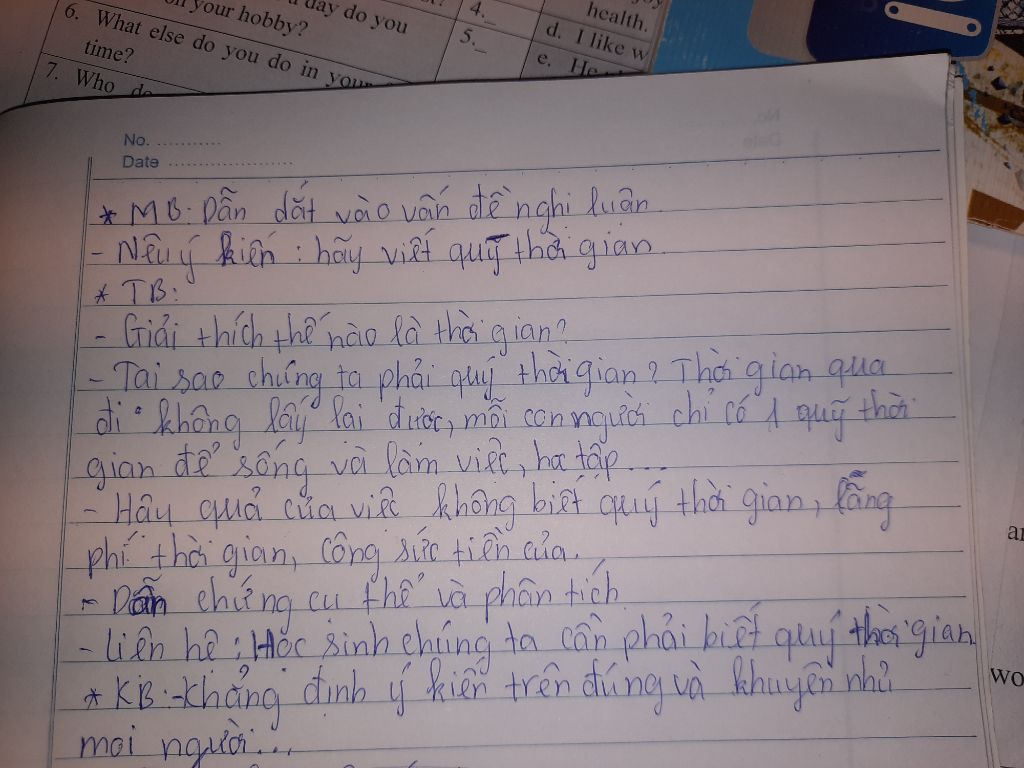 n your hobby?
day do you
6. What else do you do in your
time?
7. Who do
4._
5._
health.
d. I like w
e. He
No. ...........
Date ......................
* MB: Dẫn dắt vào vấn đề nghi luận
- Nêu ý kiến : hãy viết quỹ thời gian
* TB:
- Giải thích thế nào là thời gian?
- Tai sao chúng ta phải quý thời gian? Thời gian qua
đi không lấy lai được, mỗi con người chỉ có 1 quỹ thời
gian để sống và làm việc, hc tập...
- Hâu quả của việc không biết quý thời gian, lãng
phí thời gian, công sức tiền của.
- Dẫn chứng cu thể và phân tích
- Liên hê : Hoc sinh chúng ta cần phải biết quý thời gian
* KB: - Khẳng đinh ý kiến trên đúng và khuyên nhủ
moi người...
wo